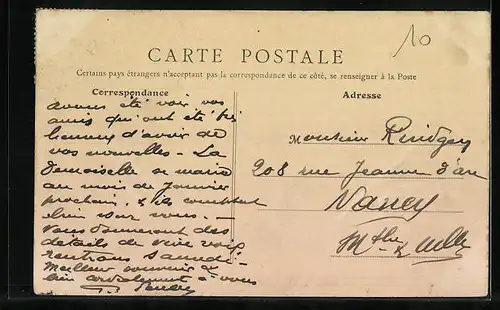 10
CARTE POSTALE
Certains pays étrangers n'acceptant pas la correspondance de ce côté, se renseigner à la Poste
Correspondance
avons été voir vos
amis qui ont été très
heureux d'avoir de
vos nouvelles - La
Demoiselle se marie
au mois de Janvier
prochain, & ils comptent
bien sur vous. -
Vous donneront des
détails de vive voix
rentrons samedi -
Meilleur souvenir &
bien cordialement à vous
Adresse
Monsieur
208 rue Jeanne d'arc
Nancy
Mthe & Mlle